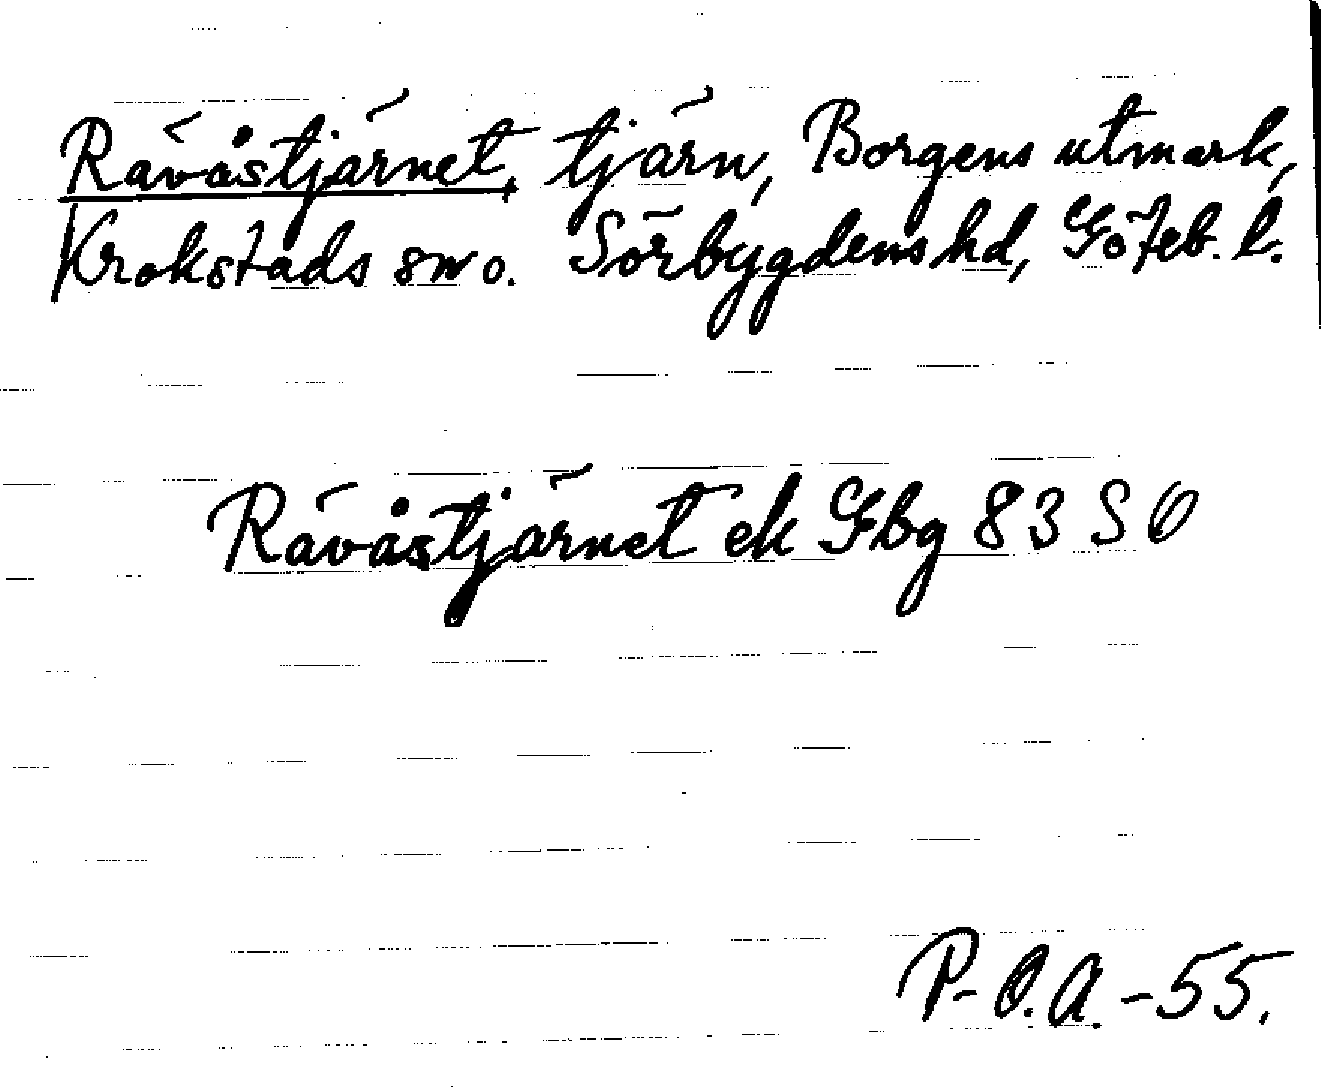 Rävåstjärnet, tjärn, Borgens utmark,
Krokstads sn o. Sörbygdens hd, Göteb. l.
Rävåstjärnet ek Gbg 83 SO
P-O.A.-55.